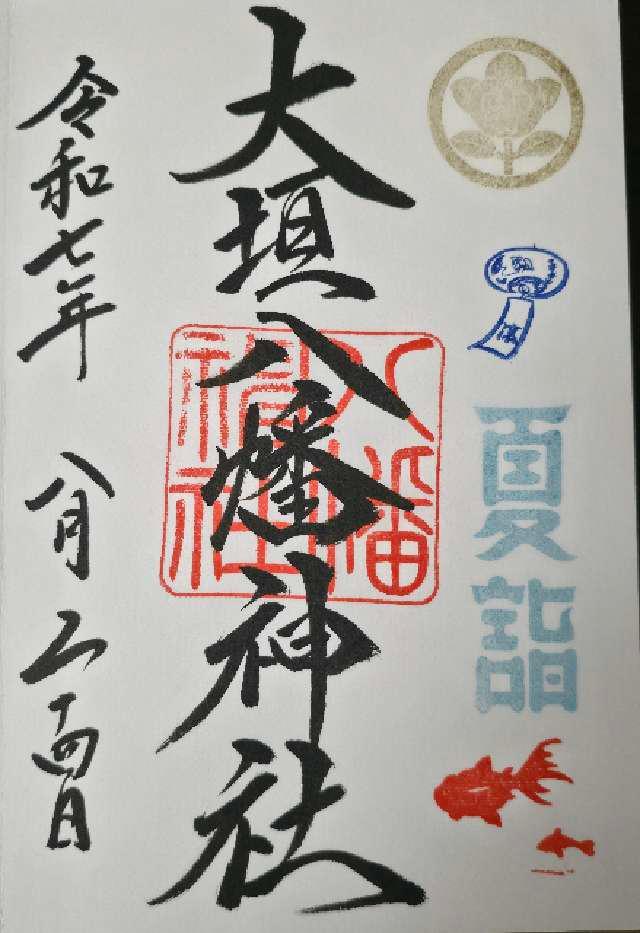 夏詣
大垣八幡神社
八幡神社
令和七年 八月二十四日